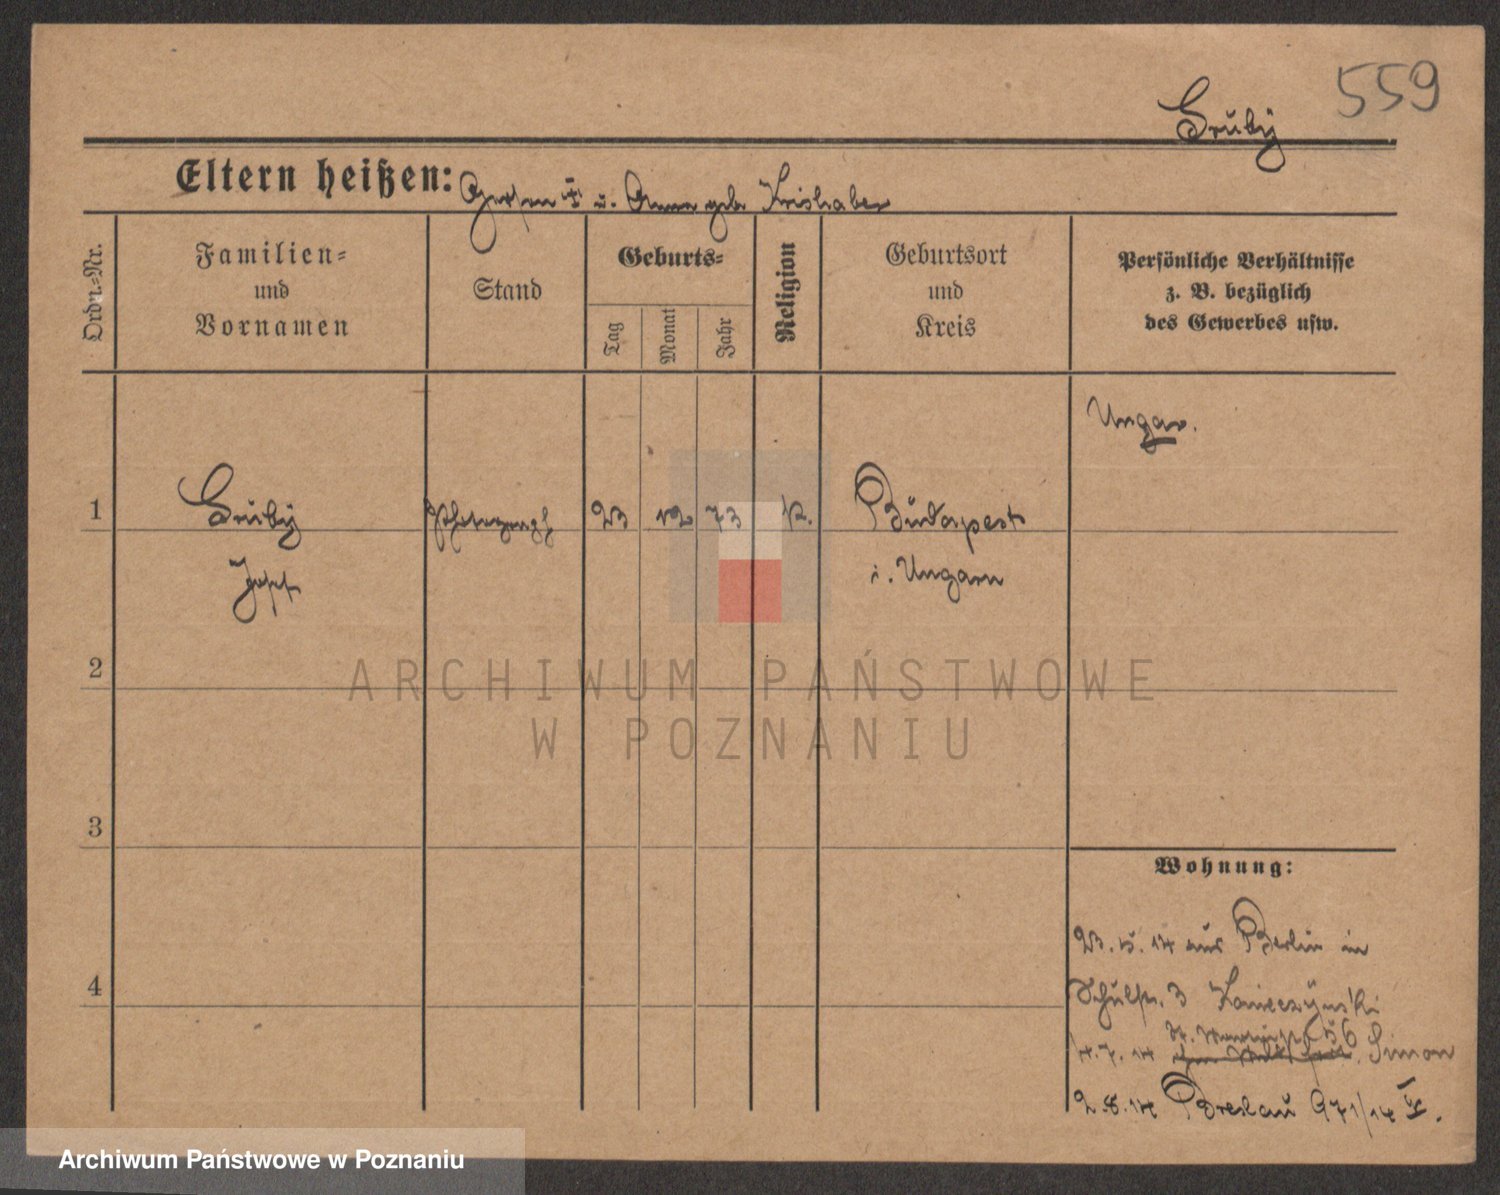 559
Gruby
Eltern heißen: u. Anna geb. Krishaber
Ordn.-Nr.
Familien-
und
Vornamen
Stand
Geburts-
Tag
Monat
Jahr
Religion
Geburtsort
und
Kreis
Persönliche Verhältnisse
z. B. bezüglich
des Gewerbes usw.
Ungar.
1
Gruby
Josef
Photograph
23
12
73
k.
Budapest
i. Ungarn
2
3
4
ARCHIWUM PAŃSTWOWE
W POZNANIU
Wohnung:
23.5.14 aus Berlin in
Schulstr. 3
4.7.14 St. Martinstr. 56 Simon
2.8.14 Breslau 971/14
Archiwum Państwowe w Poznaniu